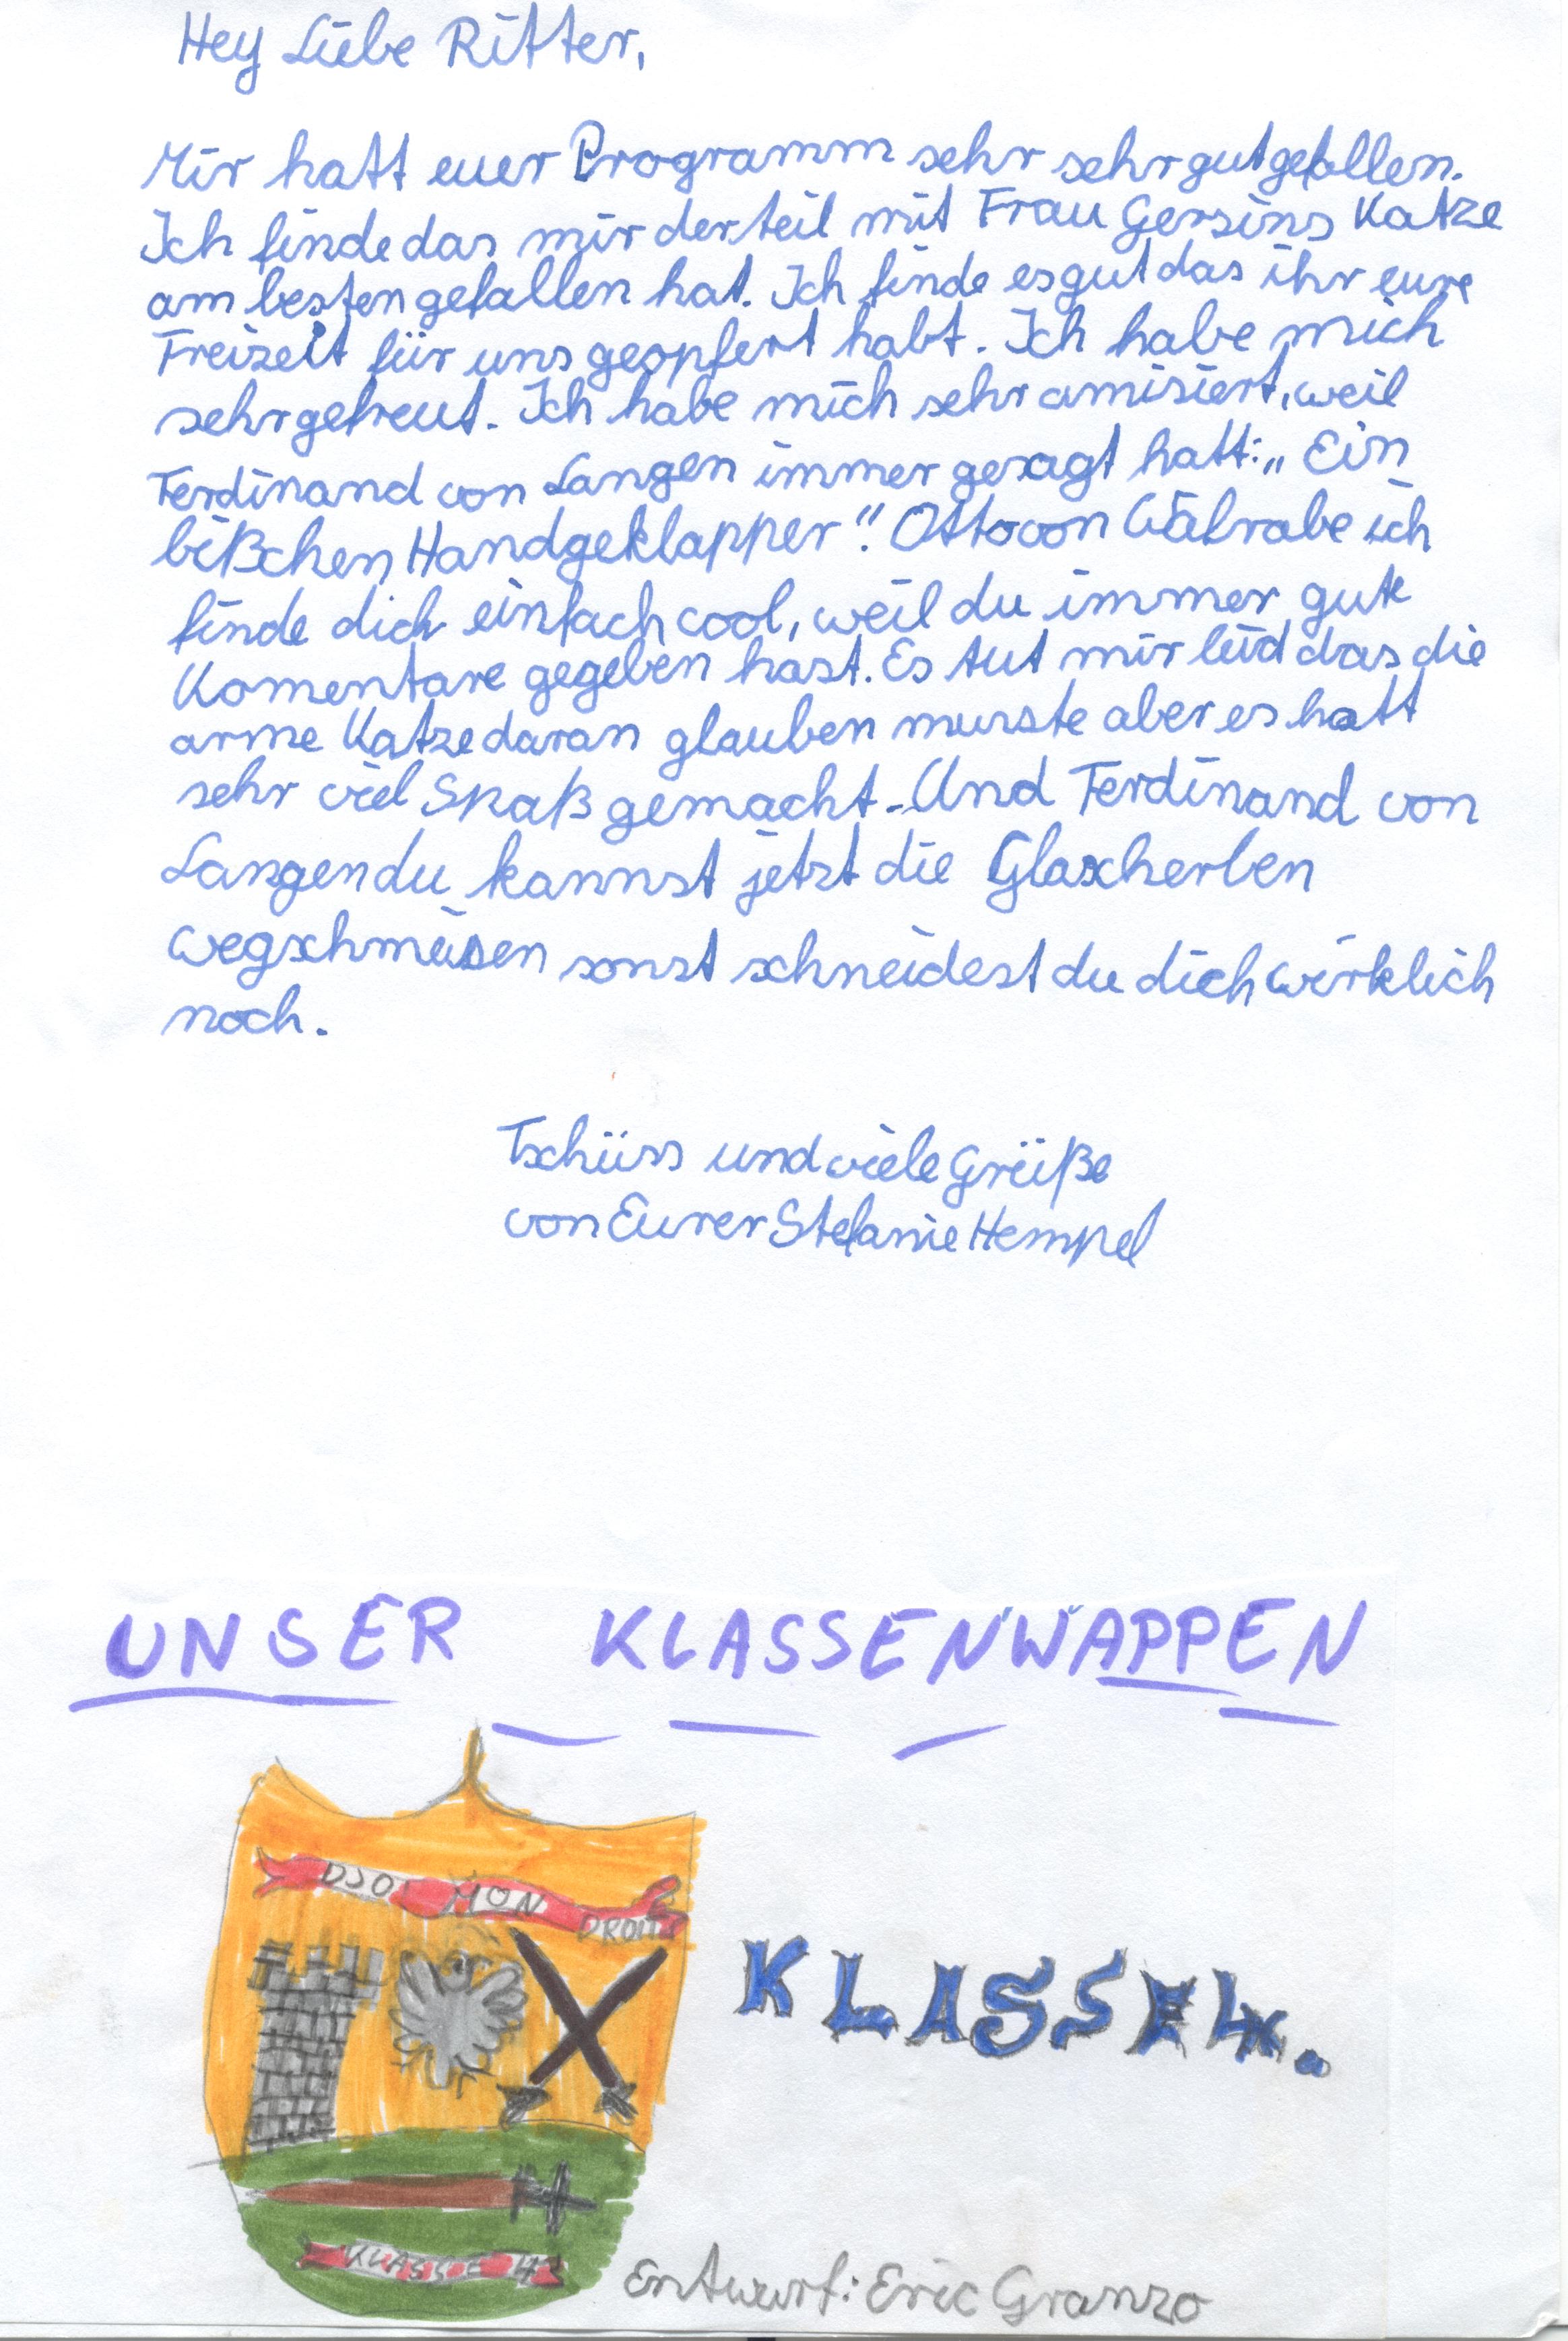 Hey Liebe Ritter,
Mir hatt euer Programm sehr sehr gut gefallen.
Ich finde das mir der teil mit Frau Gersins Katze
am besten gefallen hat. Ich finde es gut das ihr eure
Freizeit für uns geopfert habt. Ich habe mich
sehr gefreut. Ich habe mich sehr amisiert, weil
Ferdinand von Langen immer gesagt hatt: „Ein
bißchen Handgeklapper"! Otto von Walrabe ich
finde dich einfach cool, weil du immer gute
Komentare gegeben hast. Es tut mir leid das die
arme Katze daran glauben musste aber es hatt
sehr viel Spaß gemacht. Und Ferdinand von
Langen du kannst jetzt die Glascherben
wegschmeisen sonst schneidest du dich wirklich
noch.
Tschüss und viele Grüße
von Eurer Stefanie Hempel
UNSER KLASSENWAPPEN
DJO MON DROIT
KLASSE 4.
KLASSE 4
Entwurf: Eric Granzo